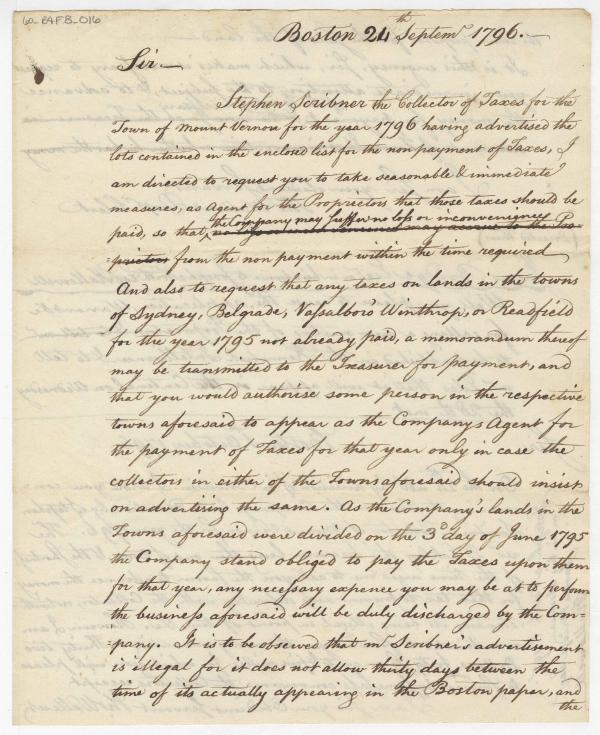 60_E4FB_016
Boston 24th Septemr 1796.—
Sir—
Stephen Scribner the Collector of Taxes for the
Town of Mount Vernon for the year 1796 having advertised the
lots contained in the enclosed list for the non payment of Taxes, I
am directed to request you to take seasonable & immediate
measures, as Agent for the Proprietors that those taxes should be
the Company may suffer no loss or inconvenience
paid, so that may accrue to the Pro-
prietors from the non payment within the time required
And also to request that any taxes on lands in the towns
of Sydney, Belgrade, Vassalboro' Winthrop, or Readfield
for the year 1795 not already paid, a memorandum thereof
may be transmitted to the Treasurer for payment, and
that you would authorise some person in the respective
towns aforesaid to appear as the Companys Agent for
the payment of Taxes for that year only in case the
collectors in either of the Towns aforesaid should insist
on advertising the same. As the Company's lands in the
Towns aforesaid were divided on the 3d day of June 1795
the Company stand obliged to pay the Taxes upon them
for that year, any necessary expence you may be at to perform
the business aforesaid will be duly discharged by the Com-
=pany. It is to be observed that mr Scribner's advertisement
is illegal for it does not allow thirty days between the
time of its actually appearing in the Boston paper, and
the